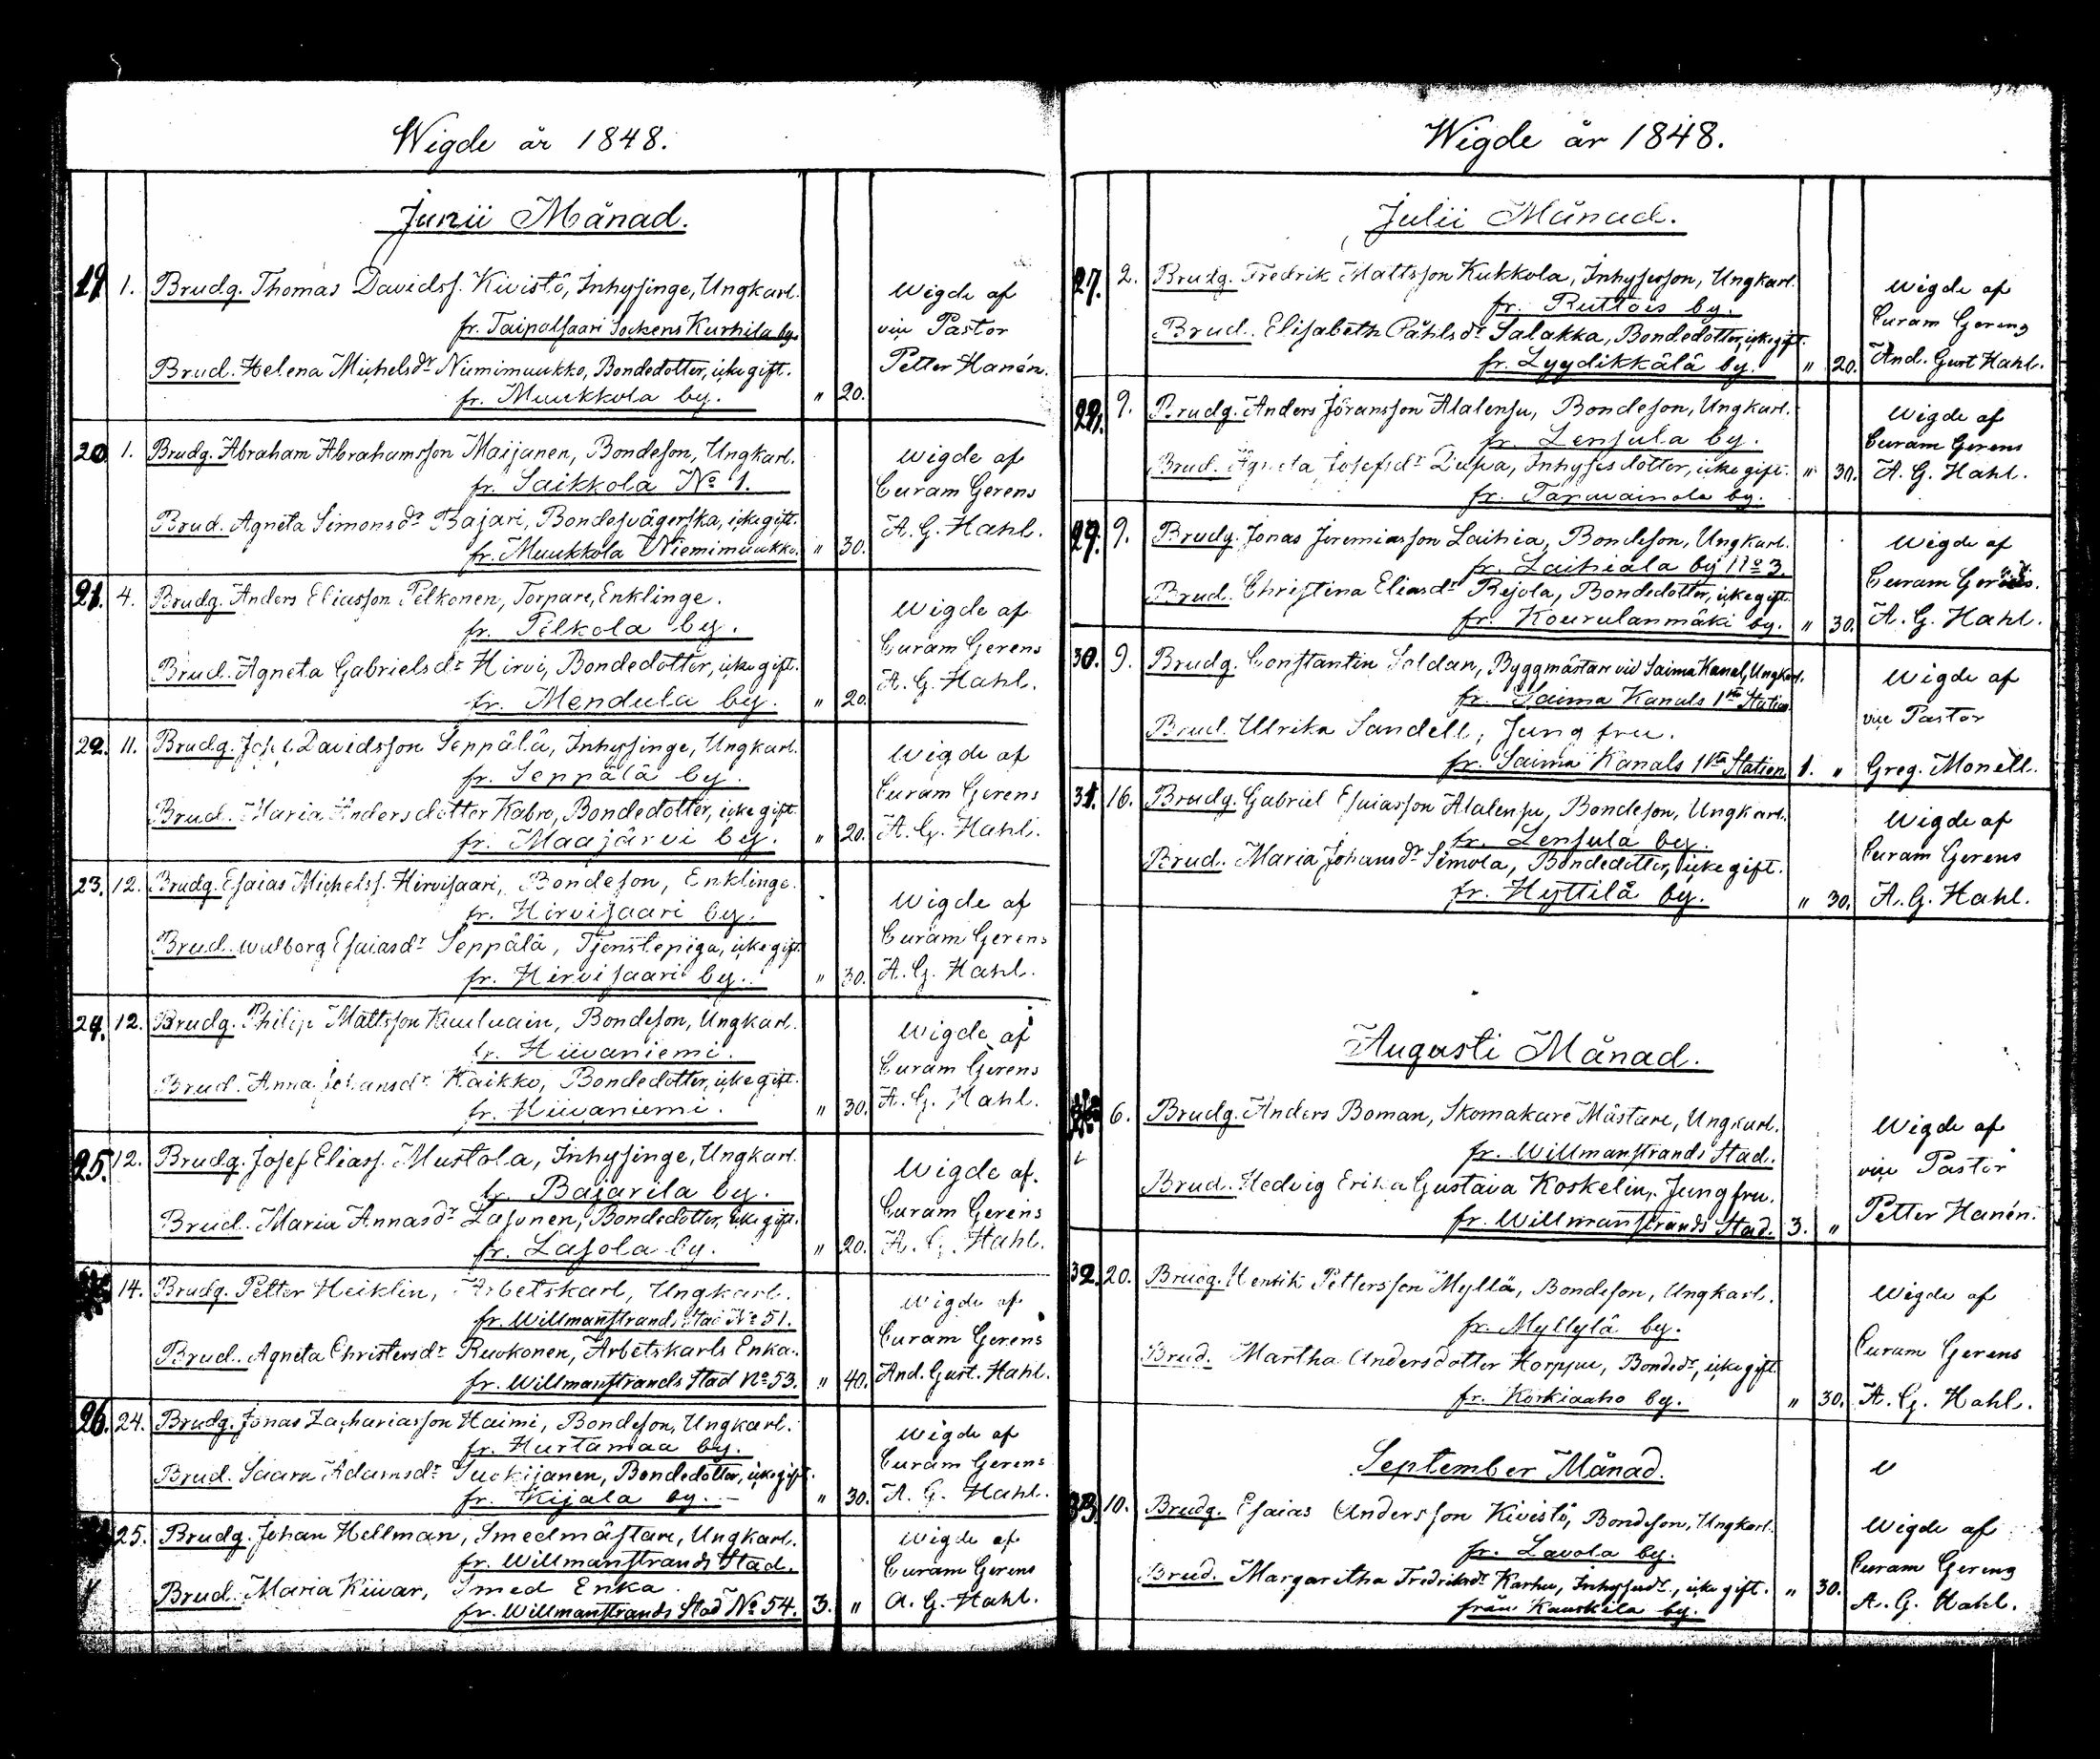 Wigde år 1848.
Junii Månad.
19. 1. Brudg. Thomas Davidsf. Kivistö, Inhysinge, Ungkarl.
fr. Taipalsaari Sockens Kurhila by.
Brud. Helena Michelsdr Niemimuukko, Bondedotter, icke gift.
fr. Muukkola by. " 20.
Wigde af
vice Pastor
Petter Hanén.
20 1. Brudg. Abraham Abrahamsson Maijanen, Bondeson, Ungkarl.
fr. Saikkola No 1.
Brud. Agneta Simonsdr Bajari, Bondesvägerska, icke gift.
fr. Muukkola Niemimuukko. " 30.
Wigde af
Curam Gerens
A. G. Hahl.
21. 4. Brudg. Anders Eliasson Pelkonen, Torpare, Enklinge.
fr. Pelkola by.
Brud. Agneta Gabrielsdr Hirvi, Bondedotter, icke gift.
fr. Mendula by. " 20.
Wigde af
Curam Gerens
A. G. Hahl.
22. 11. Brudg. Davidsson Seppälä, Inhysinge, Ungkarl.
fr. Seppälä by.
Brud. Maria Andersdotter Kabro, Bondedotter, icke gift.
fr. Maajärvi by. " 20.
Wigde af
Curam Gerens
A. G. Hahl.
23. 12. Brudg. Esaias Michelsf. Hirvisaari, Bondeson, Enklinge.
fr. Hirvisaari by.
Brud. Walborg Esaiasdr Seppälä, Tjenstepiga, icke gift.
fr. Hirvisaari by. " 30.
Wigde af
Curam Gerens
A. G. Hahl.
24. 12. Brudg. Philip Mattsson Kuuluain, Bondeson, Ungkarl.
fr. Hiivaniemi.
Brud. Anna Johansdr Kaikko, Bondedotter, icke gift.
fr. Hiivaniemi. " 30.
Wigde af
Curam Gerens
A. G. Hahl.
25. 12. Brudg. Josef Eliass. Mustola, Inhysinge, Ungkarl.
fr. Bajarila by.
Brud. Maria Annasdr Lasonen, Bondedotter, icke gift.
fr. Lasola by. " 20.
Wigde af.
Curam Gerens
A. G. Hahl.
14. Brudg. Petter Heiklin, Arbetskarl, Ungkarl.
fr. Willmanstrands Stad No 51.
Brud. Agneta Christersdr Ruokonen, Arbetskarls Enka.
fr. Willmanstrands Stad No 53. " 40.
Wigde af
Curam Gerens
And. Gust. Hahl.
26. 24. Brudg. Jonas Zachariasson Haimi, Bondeson, Ungkarl.
fr. Hurtamaa by.
Brud. Saara Adamsdr Suokijanen, Bondedotter, icke gift.
fr. Kijala by. " 30.
Wigde af
Curam Gerens
A. G. Hahl.
25. Brudg. Johan Hellman, Smedmästare, Ungkarl.
fr. Willmanstrands Stad.
Brud. Maria Kiivar, Smed Enka.
fr. Willmanstrands Stad No 54. 3. "
Wigde af
Curam Gerens
A. G. Hahl.
Wigde år 1848.
Julii Månad.
27. 2. Brudg. Fredrik Mattsson Kukkola, Inhysesson, Ungkarl.
fr. Ruttois by.
Brud. Elisabeth Påhlsdr Salakka, Bondedotter, icke gift.
fr. Lyydikkälä by. " 20.
Wigde af
Curam Gerens
And. Gust Hahl.
28. 9. Brudg. Anders Jöransson Alalensu, Bondeson, Ungkarl.
fr. Lensula by.
Brud. Agneta Josefsdr Inhysesdotter, icke gift.
fr. Taravainola by. " 30.
Wigde af
Curam Gerens
A. G. Hahl.
29. 9. Brudg. Jonas Jeremiasson Laihia, Bondeson, Ungkarl.
fr. Laihiala by No 3.
Brud. Christina Eliasdr Rejola, Bondedotter, icke gift.
fr. Kourulanmäki by. " 30.
Wigde af
Curam Gerens.
A. G. Hahl.
30. 9. Brudg. Constantin Soldan, Byggmästare vid Saima Kanal, Ungkarl.
fr. Saima Kanals 1sta Station
Brud. Ulrika Sandell, Jungfru.
fr. Saima Kanals 1sta Station 1. "
Wigde af
vice Pastor
Greg. Monell.
31. 16. Brudg. Gabriel Esaiasson Alalensu, Bondeson, Ungkarl.
fr. Lensula by.
Brud. Maria Johansdr Simola, Bondedotter, icke gift.
fr. Hyttilä by. " 30.
Wigde af
Curam Gerens
A. G. Hahl.
Augusti Månad.
6. Brudg. Anders Boman, Skomakare Mästare, Ungkarl.
fr. Willmanstrands Stad.
Brud. Hedvig Erika Gustava Koskelin, Jungfru.
fr. Willmanstrands Stad. 3. "
Wigde af
vice Pastor
Petter Hanén.
32. 20. Brudg. Henrik Pettersson Myllä, Bondeson, Ungkarl.
fr. Myllylä by.
Brud. Martha Andersdotter Horppu, Bondedr, icke gift
fr. Korkiaaho by. " 30.
Wigde af
Curam Gerens
A. G. Hahl.
September Månad.
33. 10. Brudg. Esaias Andersson Kivistö, Bondeson, Ungkarl.
fr. Lavola by.
Brud. Margaritha Fredriksdr Karhu, Inhysesdr., icke gift.
från Kauskila by. " 30.
Wigde af
Curam Gerens
A. G. Hahl.